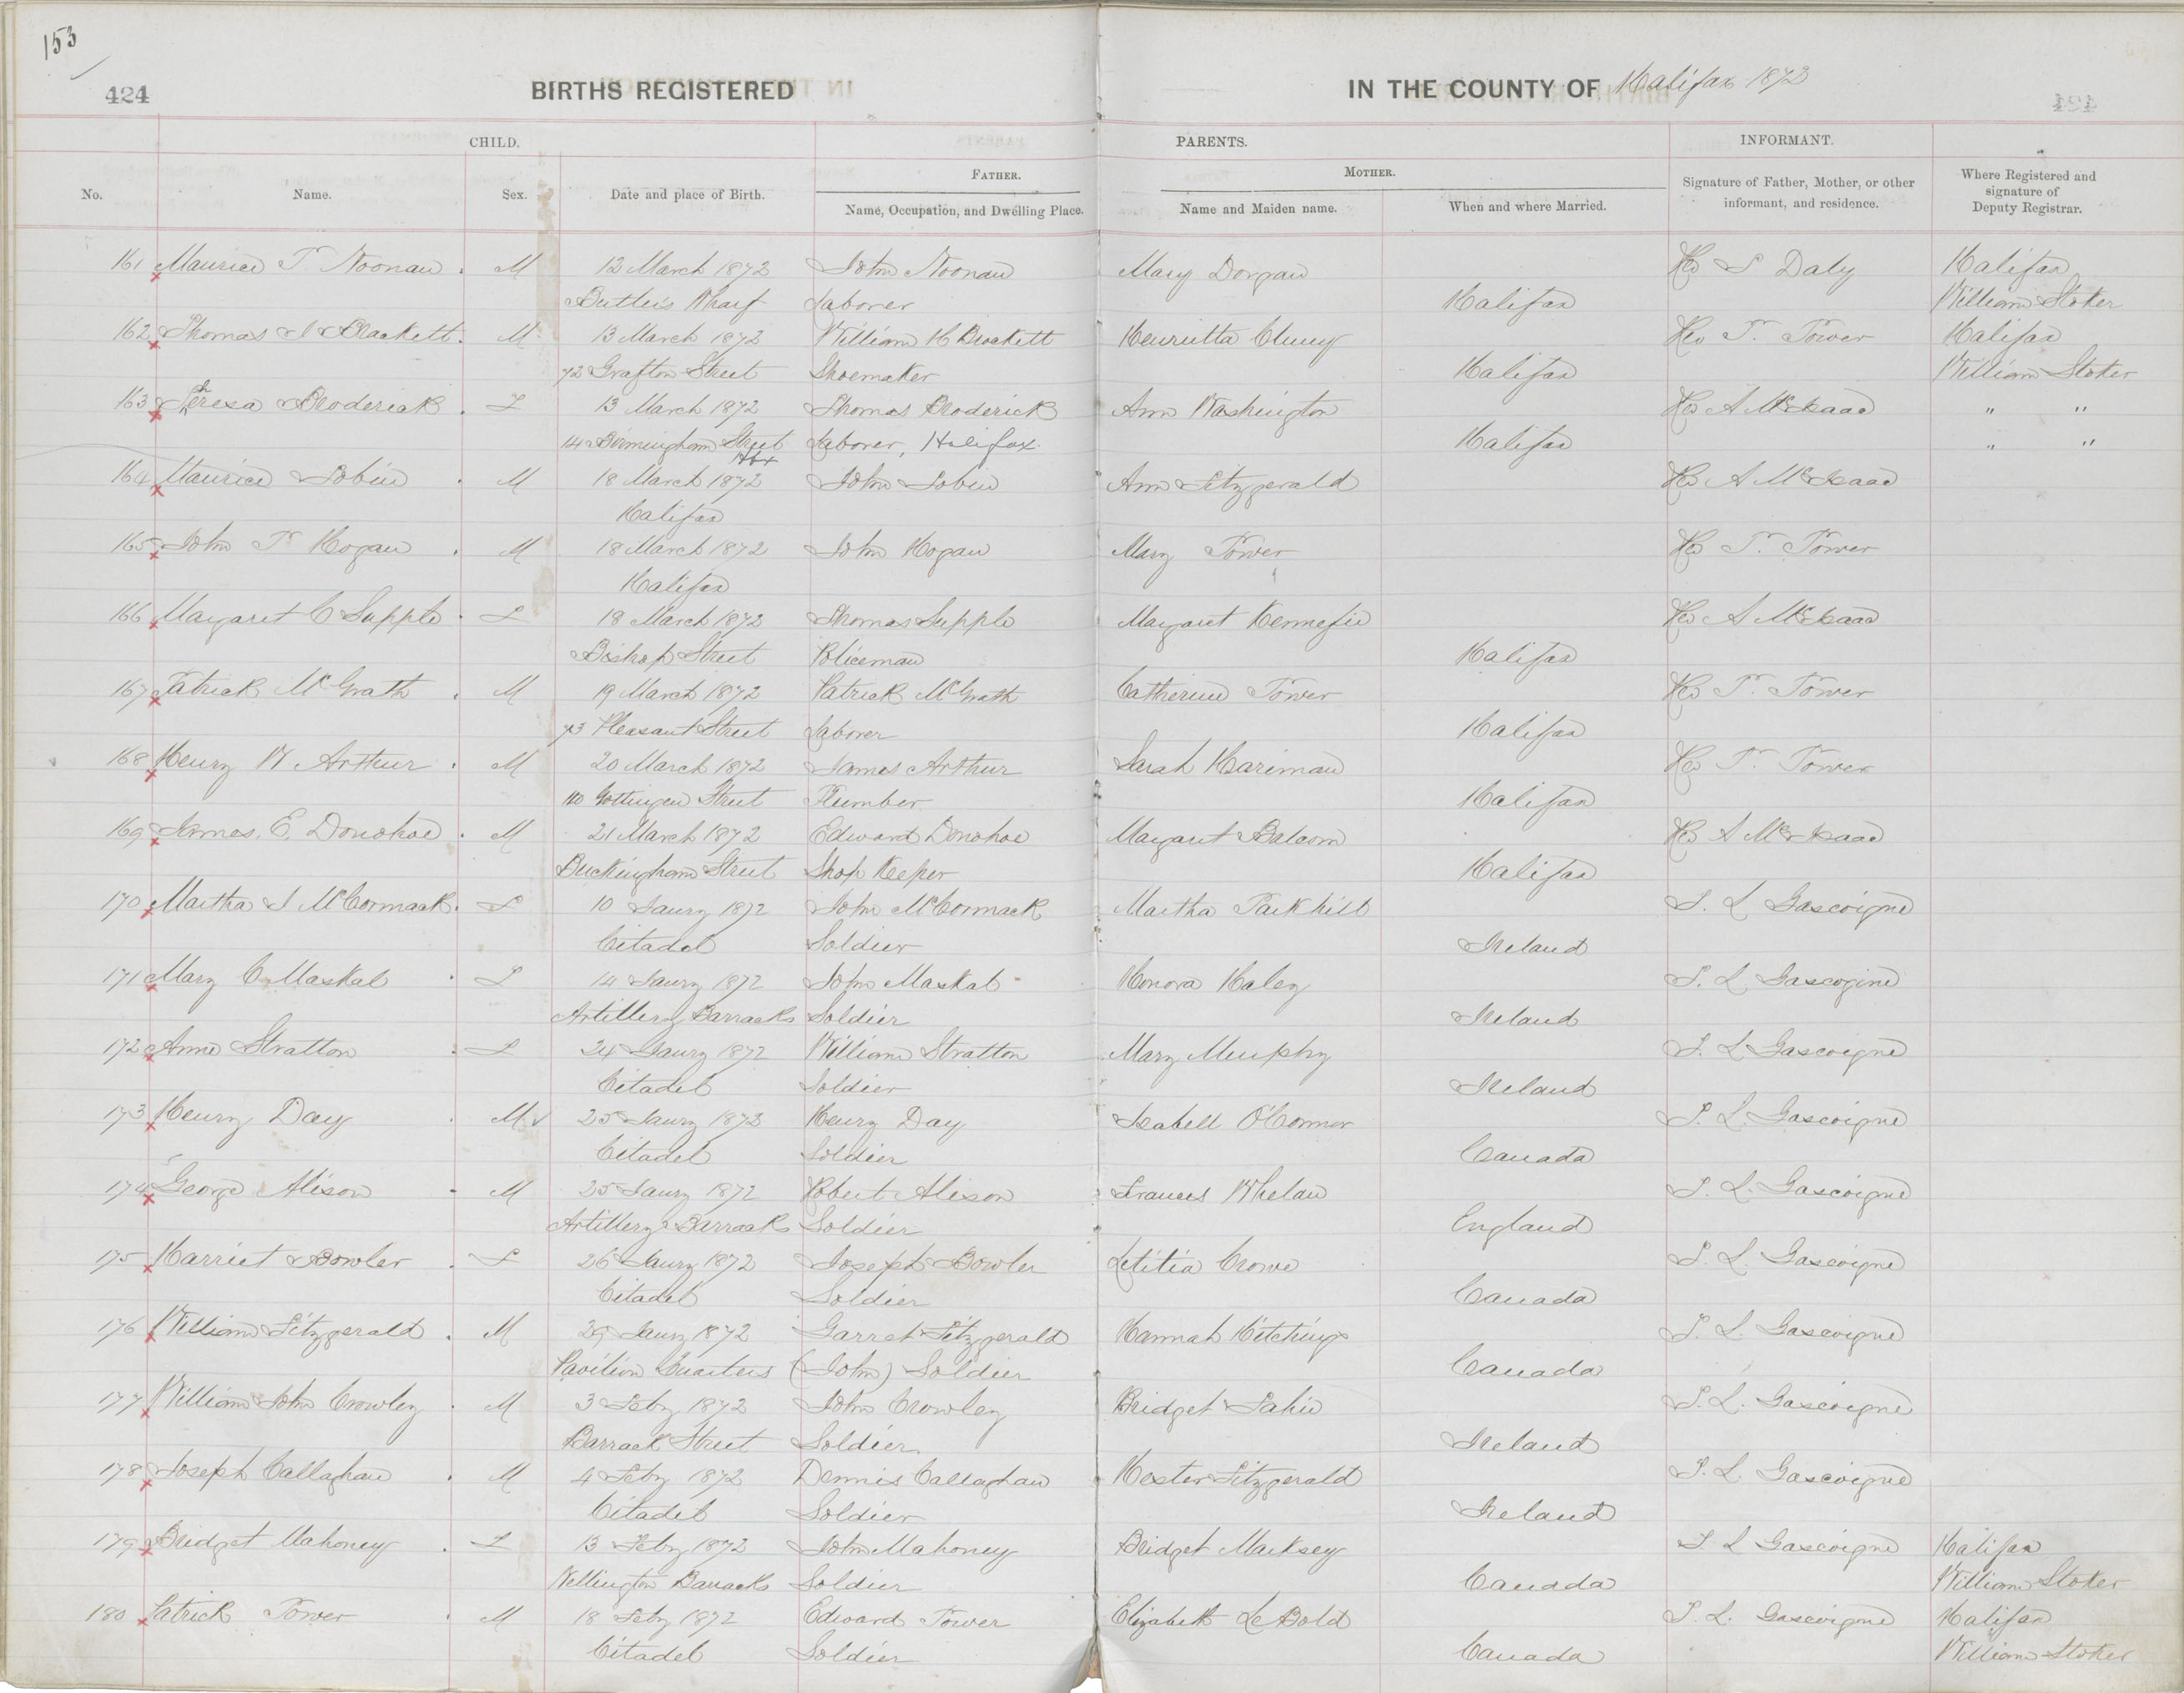 153
424
BIRTHS REGISTERED IN THE COUNTY OF Halifax 1872
CHILD. PARENTS. INFORMANT.
No. Name. Sex. Date and place of Birth. FATHER. Name, Occupation, and Dwelling Place. MOTHER. Name and Maiden name. When and where Married. Signature of Father, Mother, or other informant, and residence. Where Registered and signature of Deputy Registrar.
161 Maurice P Noonan M 12 March 1872 John Noonan Mary Dorgan Daly Halifax
Butlers Wharf Laborer Halifax William Stoker
162 Thomas Brackett M 13 March 1872 William H Brackett Henrietta Cluney P. Power Halifax
72 Grafton Street Shoemaker Halifax William Stoker
163 Theresa Broderick F 13 March 1872 Thomas Broderick Ann Washington A McIsaac " "
14 Birmingham Street Hfx Laborer, Halifax. Halifax " "
164 Maurice Tobin M 18 March 1872 John Tobin Ann Fitzgerald A McIsaac
Halifax
165 John P Hogan M 18 March 1872 John Hogan Mary Power P. Power
Halifax
166 Margaret C Supple F 18 March 1872 Thomas Supple Margaret Kennefie A McIsaac
Bishop Street Policeman Halifax
167 Patrick McGrath M 19 March 1872 Patrick McGrath Catherine Power P. Power
73 Pleasant Street Laborer Halifax
168 Henry W. Arthur M 20 March 1872 James Arthur Sarah Hariman P. Power
110 Gottingen Street Plumber Halifax
169 James. E. Donohoe M 21 March 1872 Edward Donohoe Margaret Balcom A McIsaac
Buckingham Street Shop Keeper Halifax
170 Martha J McCormack F 10 Jaury 1872 John McCormack Martha Parkhill L Gascoigne
Citadel Soldier Ireland
171 Mary C Maskal F 14 Jaury 1872 John Maskal Honora Haley L. Gascogine
Artillery Barracks Soldier Ireland
172 Anne Stratton F 24 Jaury 1872 William Stratton Mary Murphy L Gascoigne
Citadel Soldier Ireland
173 Henry Day M 25 Jaury 1872 Henry Day Isabell O'Connor L. Gascoigne
Citadel Soldier Canada
174 George Alison M 25 Jaury 1872 Robert Alison Frances Whelan L. Gascoigne
Artillery Barracks Soldier England
175 Harriet Bowler F 26 Jaury 1872 Joseph Bowler Letitia Crowe L. Gascoigne
Citadel Soldier Canada
176 William Fitzgerald M 29 Jaury 1872 Garret Fitzgerald Hannah Hitchings L. Gascoigne
Pavilion Quarters (John) Soldier Canada
177 William John Crowley M 3 Feby 1872 John Crowley Bridget Fahie L. Gascoigne
Barrack Street Soldier Ireland
178 Joseph Callaghan M 4 Feby 1872 Dennis Callaghan Hester Fitzgerald L. Gascoigne
Citadel Soldier Ireland
179 Bridget Mahoney F 13 Feby 1872 John Mahoney Bridget Marksey L Gascoigne Halifax
Wellington Barracks Soldier Canada William Stoker
180 Patrick Power M 18 Feby 1872 Edward Power Elizabeth LeBold L. Gascoigne Halifax
Citadel Soldier Canada William Stoker